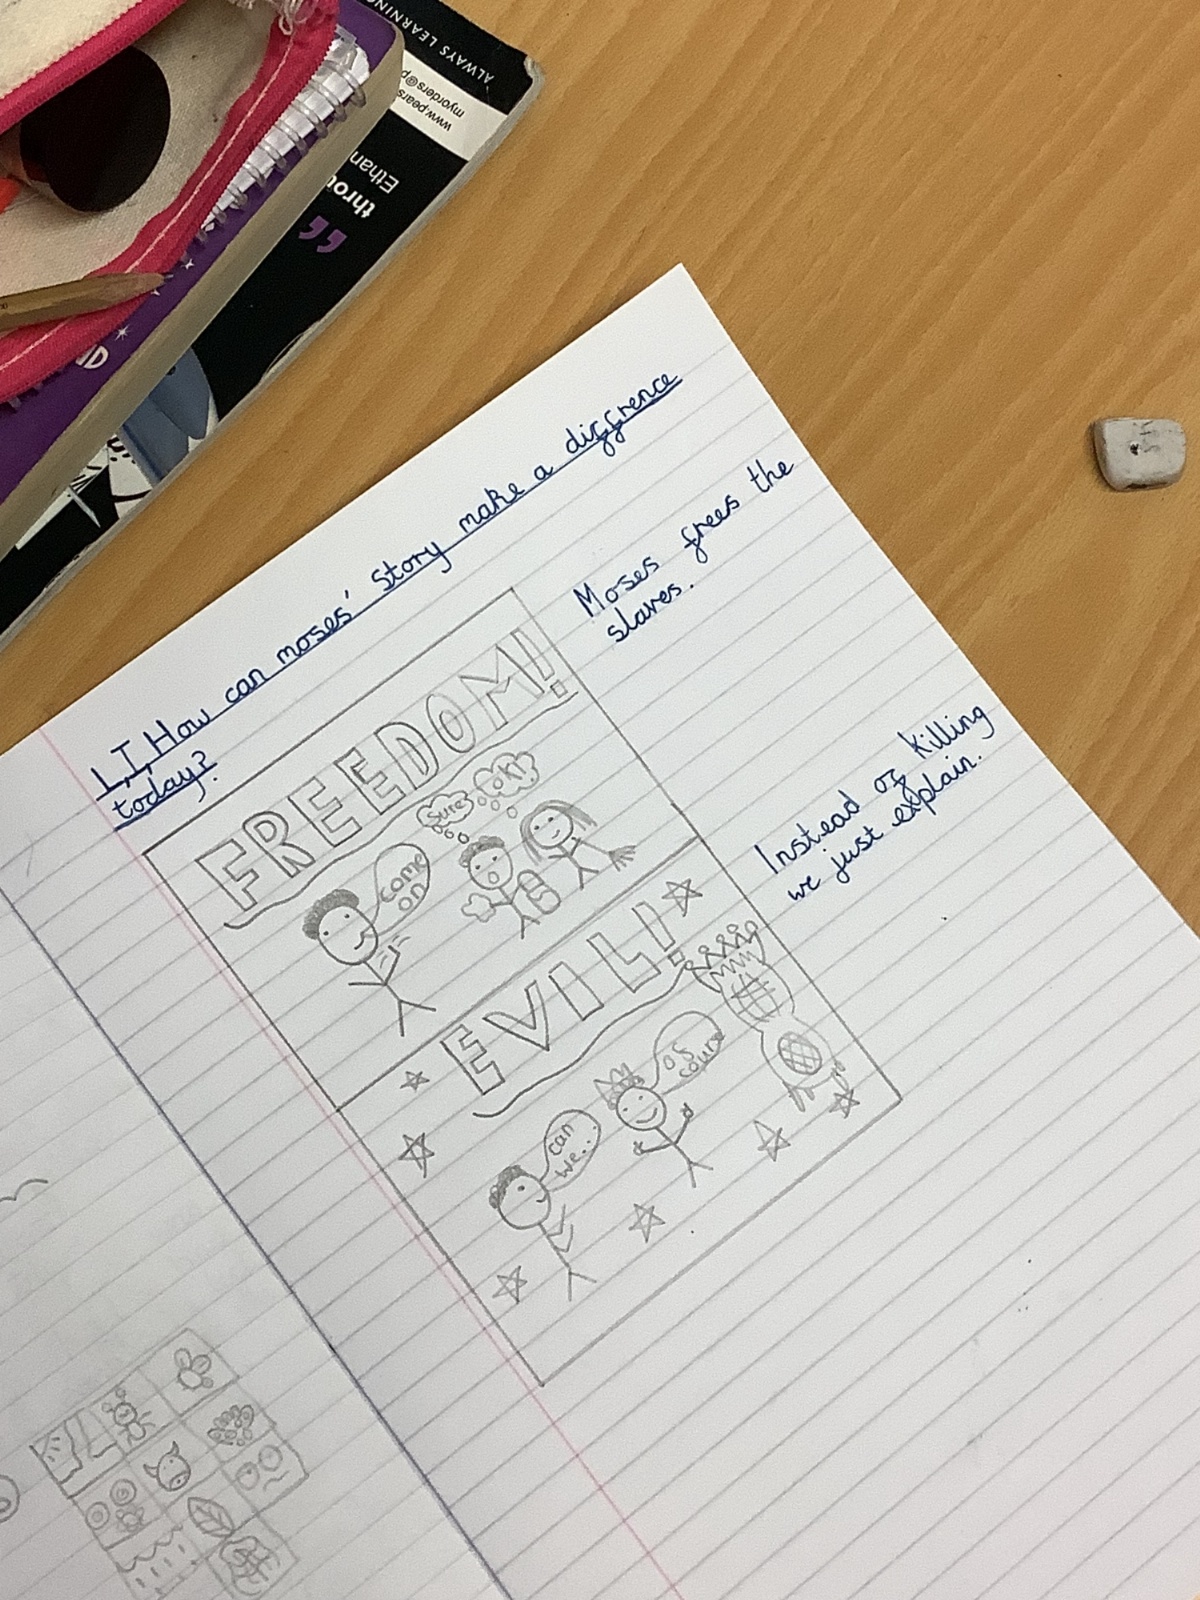 ALWAYS LEARNING
www.pears
myorders@p
Ethan
throu
”
L.I. How can moses' Story make a diffrence
today?
FREEDOM!!
Sure
OK!
come
on
Moses frees the
slaves.
EVIL!
can
we...
of
course
Instead of killing
we just explain.